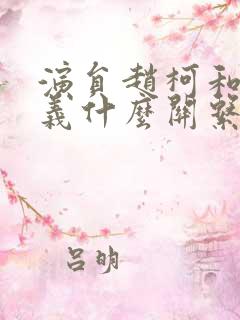 演員趙柯和
義什麼關繫
吕明